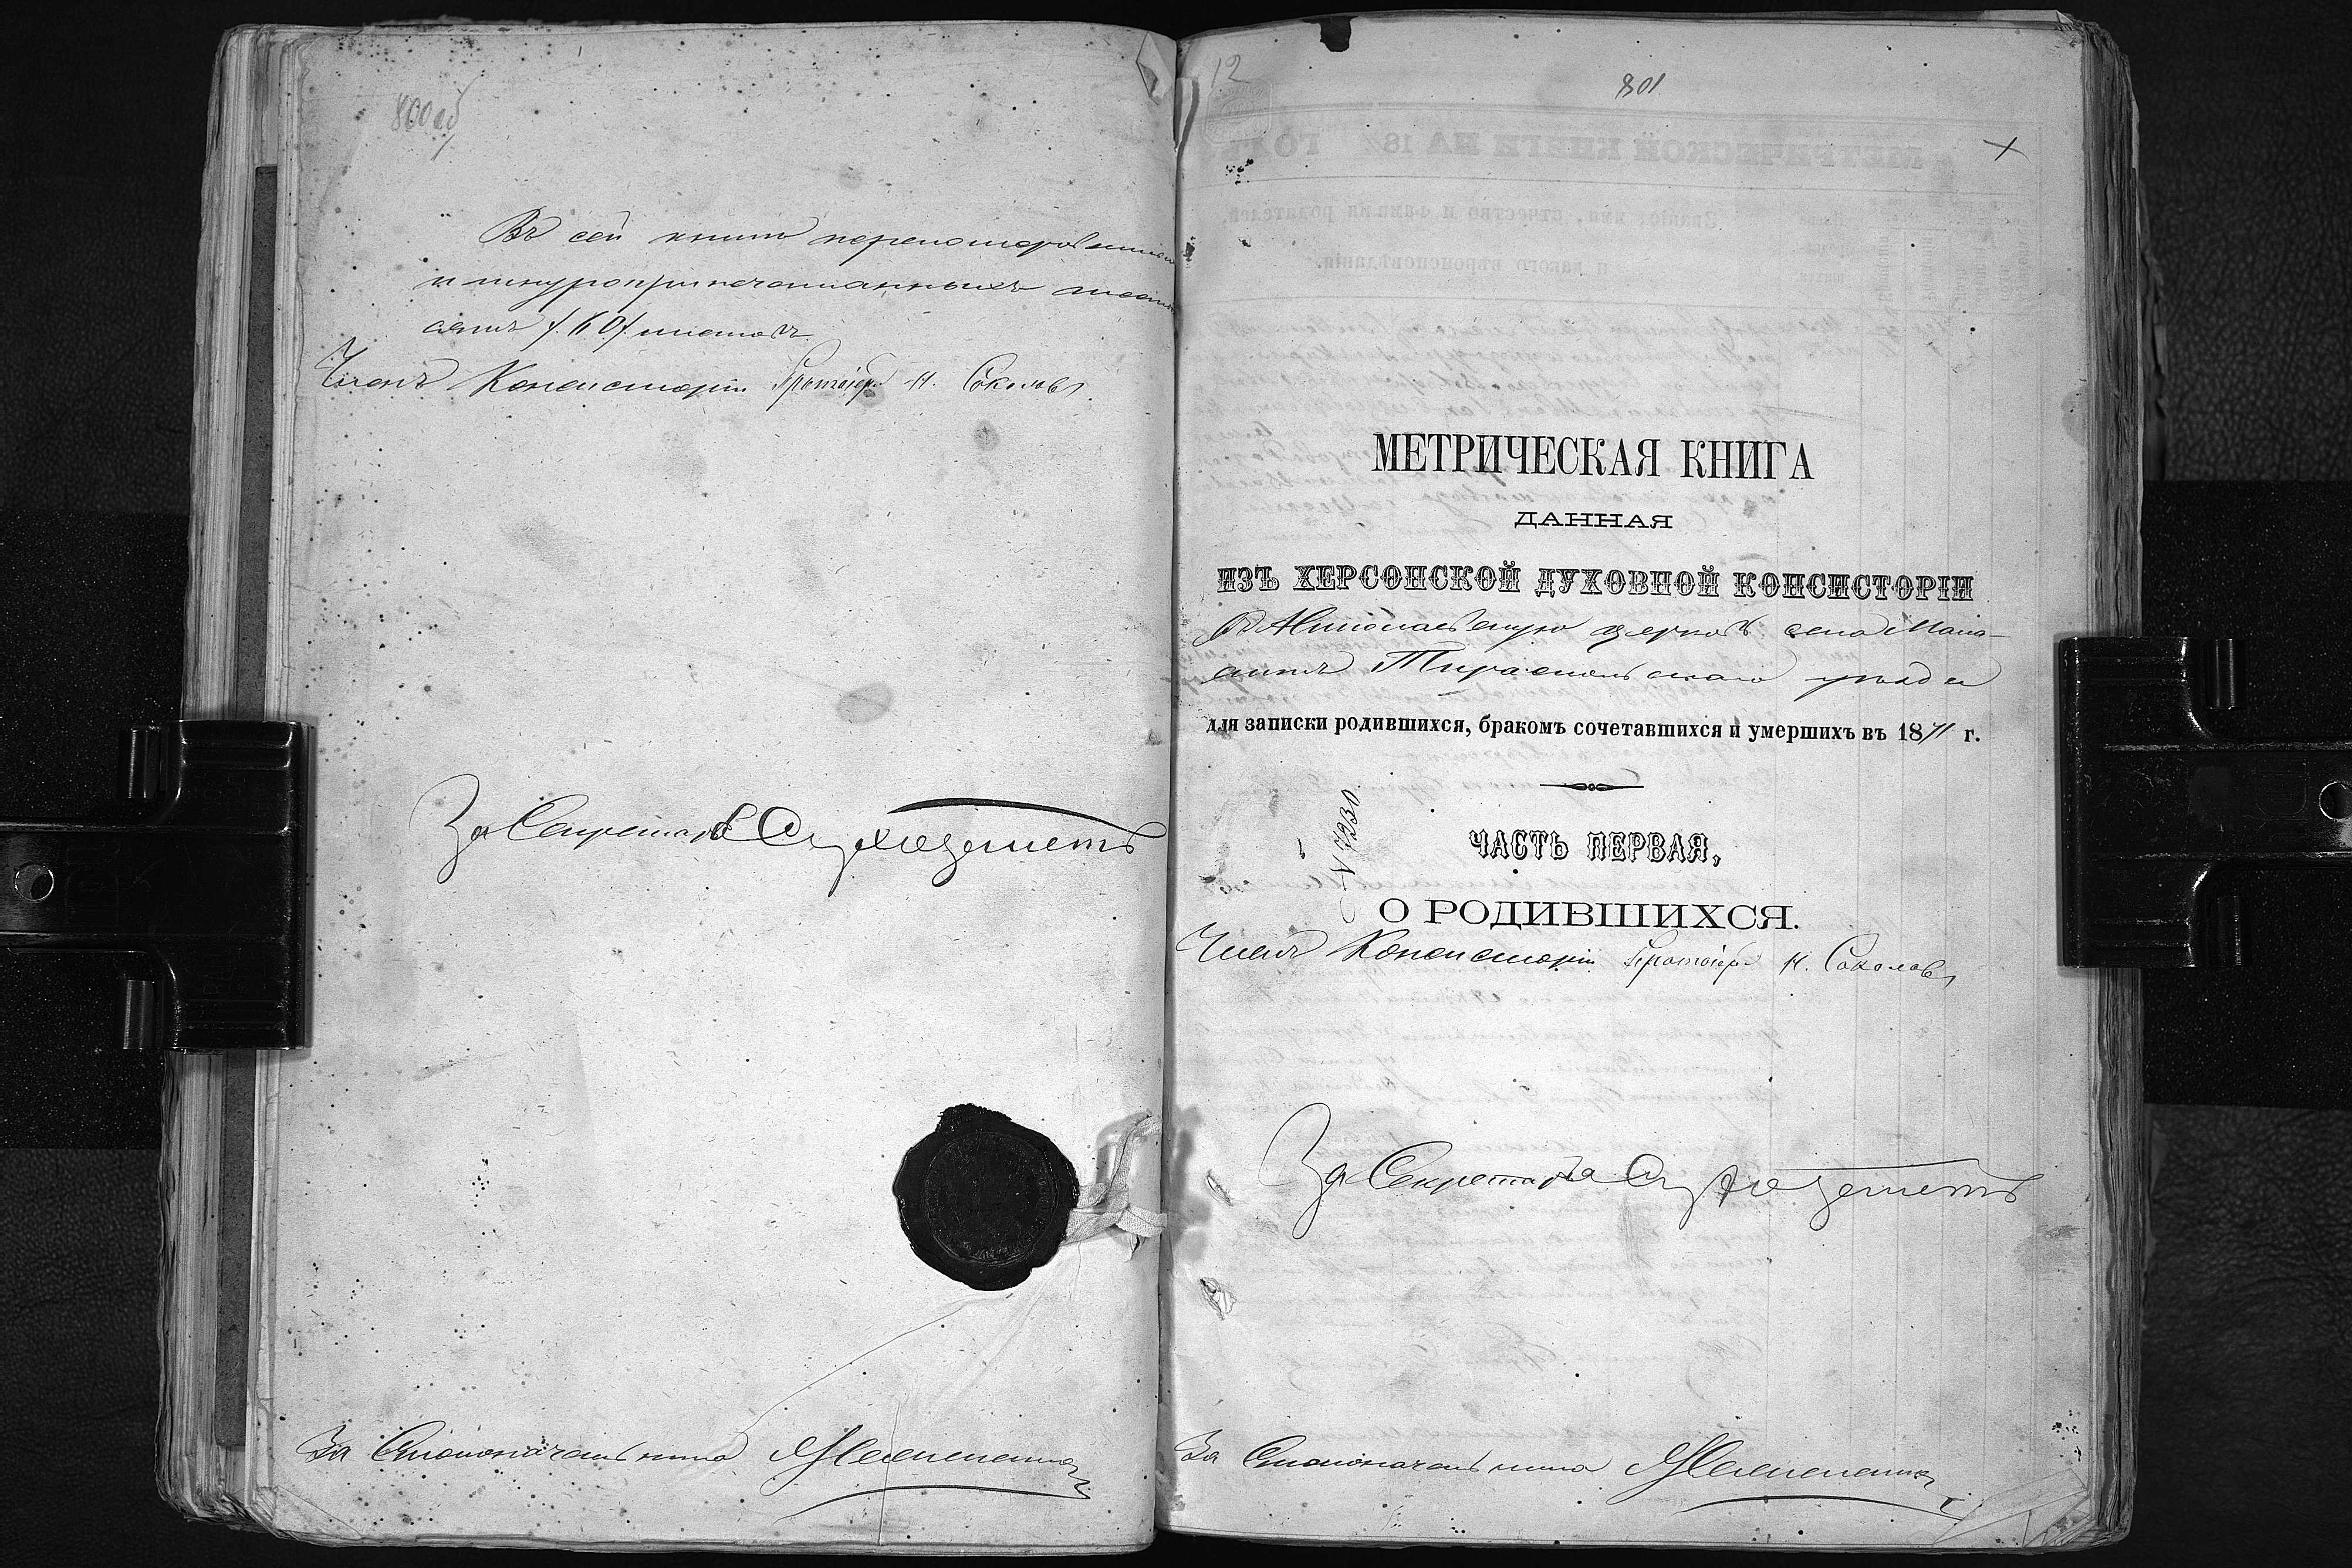 800 об
Въ сей книгѣ перенумерованныхъ
и шнуроприпечатанныхъ шесть
десятъ /60/ листовъ
Членъ Консисторіи Протоіер. Н. Соколовъ
За Секретаря
За Столоначальника
12
801
МЕТРИЧЕСКАЯ КНИГА
ДАННАЯ
ИЗЪ ХЕРСОНСКОЙ ДУХОВНОЙ КОНСИСТОРІИ
въ Николаевскую церковь села Мала-
ештъ Тираспольскаго уѣзда
для записки родившихся, бракомъ сочетавшихся и умершихъ въ 1871 г.
N 7230.
ЧАСТЬ ПЕРВАЯ,
О РОДИВШИХСЯ.
Членъ Консисторіи Протоіер. Н. Соколовъ
За Секретаря
За Столоначальника